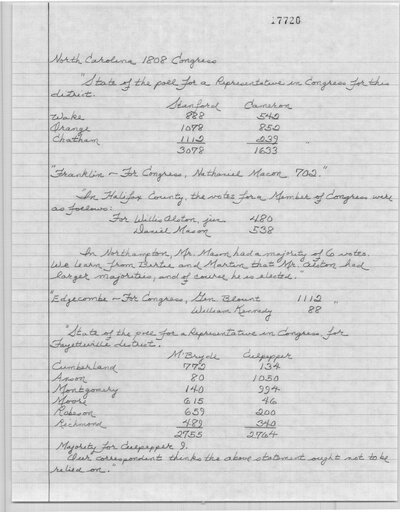 17726
North Carolina 1808 Congress
"State of the poll for a Representative in Congress for this
district.
Stanford Cameron
Wake 888 542
Orange 1078 852
Chatham 1112 239 "
3078 1633
"Franklin - For Congress, Nathaniel Macon 702."
"In Halifax County, the votes for a Member of Congress were
as follows:
For Willis Alston, jun 480
Daniel Mason 538
In Northampton, Mr. Mason had a majority of 6 votes.
We learn from Bertie and Martin that Mr. Alston had
larger majorities, and of course he is elected."
"Edgecombe - For Congress, Gen Blount 1112 "
William Kennedy 88
"State of the poll for a Representative in Congress for
Fayetteville district.
M'Bryde Culpepper
Cumberland 772 134
Anson 80 1050
Montgomery 140 994
Moore 615 46
Robeson 659 200
Richmond 489 340
2755 2764
Majority for Culpepper 9.
Our correspondent thinks the above statement ought not to be
relied on."